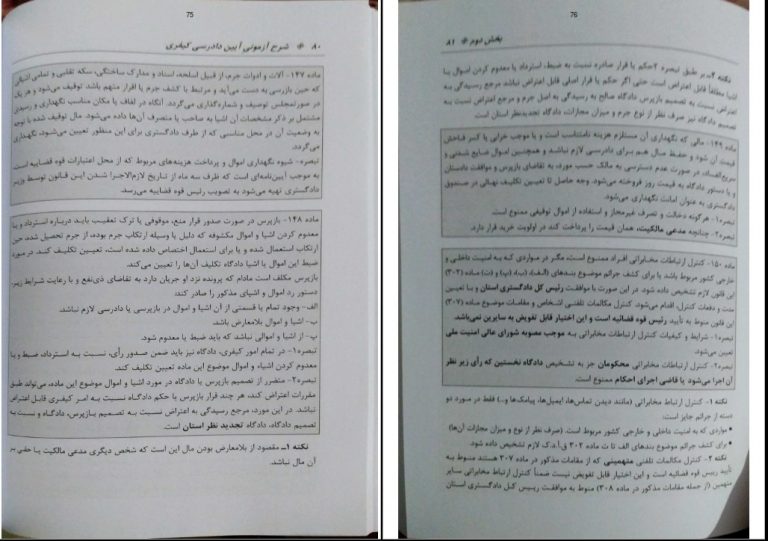 75
۸۰ * شرح آزمونی آیین دادرسی کیفری
ماده ۱۴۷- آلات و ادوات جرم، از قبیل اسلحه، اسناد و مدارک ساختگی، سکه تقلبی و تمامی اشیائی
که حین بازرسی به دست می‌آید و مرتبط با کشف جرم یا اقرار متهم باشد توقیف می‌شود و هر یک
در صورتمجلس توصیف و شماره‌گذاری می‌گردد. آنگاه در لفاف یا مکان مناسب نگهداری و رسیدی
مشتمل بر ذکر مشخصات آن اشیا به صاحب یا متصرف آن‌ها داده می‌شود. مال توقیف شده با توجه
به وضعیت آن در محل مناسبی که از طرف دادگستری برای این منظور تعیین می‌شود، نگهداری
می‌گردد.
تبصره- شیوه نگهداری اموال و پرداخت هزینه‌های مربوط که از محل اعتبارات قوه قضاییه است
به موجب آیین‌نامه‌ای است که ظرف سه ماه از تاریخ لازم‌الاجرا شدن این قانون توسط وزیر
دادگستری تهیه می‌شود به تصویب رئیس قوه قضاییه می‌رسد.
ماده ۱۴۸- بازپرس در صورت صدور قرار منع، موقوفی یا ترک تعقیب باید درباره استرداد و یا
معدوم کردن اشیا و اموال مکشوفه که دلیل یا وسیله ارتکاب جرم بوده، از جرم تحصیل شده، حین
ارتکاب استعمال شده و یا برای استعمال اختصاص داده شده است، تعیین تکلیف کند. در مورد
ضبط این اموال یا اشیا دادگاه تکلیف آن‌ها را تعیین می‌کند.
بازپرس مکلف است مادام که پرونده نزد او جریان دارد به تقاضای ذی‌نفع و با رعایت شرایط زیر،
دستور رد اموال و اشیای مذکور را صادر کند:
الف- وجود تمام یا قسمتی از آن اشیا و اموال در بازپرسی یا دادرسی لازم نباشد.
ب- اشیا و اموال بلامعارض باشد.
پ- از اشیا و اموالی نباشد که باید ضبط یا معدوم شود.
تبصره۱- در تمام امور کیفری، دادگاه نیز باید ضمن صدور رأی، نسبت به استرداد، ضبط و یا
معدوم کردن اشیاء و اموال موضوع این ماده تعیین تکلیف کند.
تبصره۲- متضرر از تصمیم بازپرس یا دادگاه در مورد اشیا و اموال موضوع این ماده، می‌تواند طبق
مقررات اعتراض کند، هر چند قرار بازپرس یا حکم دادگاه نسبت به امر کیفری قابل اعتراض
نباشد. در این مورد، مرجع رسیدگی به اعتراض نسبت به تصمیم بازپرس، دادگاه و نسبت به
تصمیم دادگاه، دادگاه تجدید نظر استان است.
نکته ۱ـ مقصود از بلامعارض بودن مال این است که شخص دیگری مدعی مالکیت یا حقی بر
آن مال نباشد.
76
بخش دوم * ۸۱
نکته ۲ـ بر طبق تبصره ۲حکم یا قرار صادره نسبت به ضبط، استرداد یا معدوم کردن اموال یا
اشیا مطلقاً قابل اعتراض است حتی اگر حکم یا قرار اصلی قابل اعتراض نباشد مرجع رسیدگی به
اعتراض نسبت به تصمیم بازپرس دادگاه صالح به رسیدگی به اصل جرم و مرجع اعتراض نسبت به
تصمیم دادگاه نیز صرف نظر از نوع جرم و میزان مجازات، دادگاه تجدیدنظر استان است.
ماده ۱۴۹- مالی که نگهداری آن مستلزم هزینه نامتناسب است و یا موجب خرابی یا کسر فاحش
قیمت آن شود و حفظ مال هم برای دادرسی لازم نباشد و همچنین اموال ضایع شدنی و
سریع‌الفساد، در صورت عدم دسترسی به مالک حسب مورد، به تقاضای بازپرس و موافقت دادستان
و یا دستور دادگاه به قیمت روز فروخته می‌شود. وجه حاصل تا تعیین تکلیف نهائی در صندوق
دادگستری به عنوان امانت نگهداری می‌شود.
تبصره۱- هرگونه دخالت و تصرف غیرمجاز و استفاده از اموال توقیفی ممنوع است.
تبصره۲- چنانچه مدعی مالکیت، همان قیمت را پرداخت کند در اولویت خرید قرار دارد.
ماده ۱۵۰- کنترل ارتباطات مخابراتی افراد ممنوع است، مگر در مواردی که به امنیت داخلی و
خارجی کشور مربوط باشد یا برای کشف جرائم موضوع بندهای (الف)، (ب)، (پ) و (ت) ماده (۳۰۲)
این قانون لازم تشخیص داده شود. در این صورت با موافقت رئیس کل دادگستری استان و با تعیین
مدت و دفعات کنترل، اقدام می‌شود. کنترل مکالمات تلفنی اشخاص و مقامات موضوع ماده (۳۰۷)
این قانون منوط به تأیید رئیس قوه قضائیه است و این اختیار قابل تفویض به سایرین نمی‌باشد.
تبصره۱- شرایط و کیفیات کنترل ارتباطات مخابراتی به موجب مصوبه شورای عالی امنیت ملی
تعیین می‌شود.
تبصره۲- کنترل ارتباطات مخابراتی محکومان جز به تشخیص دادگاه نخستین که رأی زیر نظر
آن اجرا می‌شود یا قاضی اجرای احکام ممنوع است.
نکته ۱- کنترل ارتباطات مخابراتی (مانند دیدن تماس‌ها، ایمیل‌ها، پیامک‌ها و..) فقط در مورد دو
دسته از جرائم جایز است:
• مواردی که به امنیت داخلی و خارجی کشور مربوط است. (صرف نظر از نوع و میزان مجازات آن‌ها)
• برای کشف جرائم موضوع بندهای الف تا ت ماده ۳۰۲ ق.آ.د.ک لازم تشخیص داده شود
نکته ۲- کنترل مکالمات تلفنی متهمینی که از مقامات مذکور در ماده ۳۰۷ هستند منوط به
تأیید رییس قوه قضائیه است و این اختیار قابل تفویض نیست ضمناً کنترل ارتباطات مخابراتی سایر
متهمین (از جمله مقامات مذکور در ماده ۳۰۸) منوط به موافقت رییس کل دادگستری استان